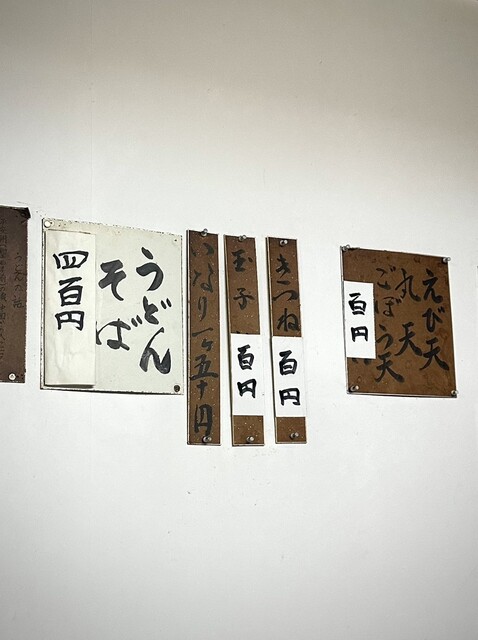 えび天
丸天
ごぼう天
百円
きつね
百円
玉子
百円
いなり一ヶ五十円
うどん
そば
四百円